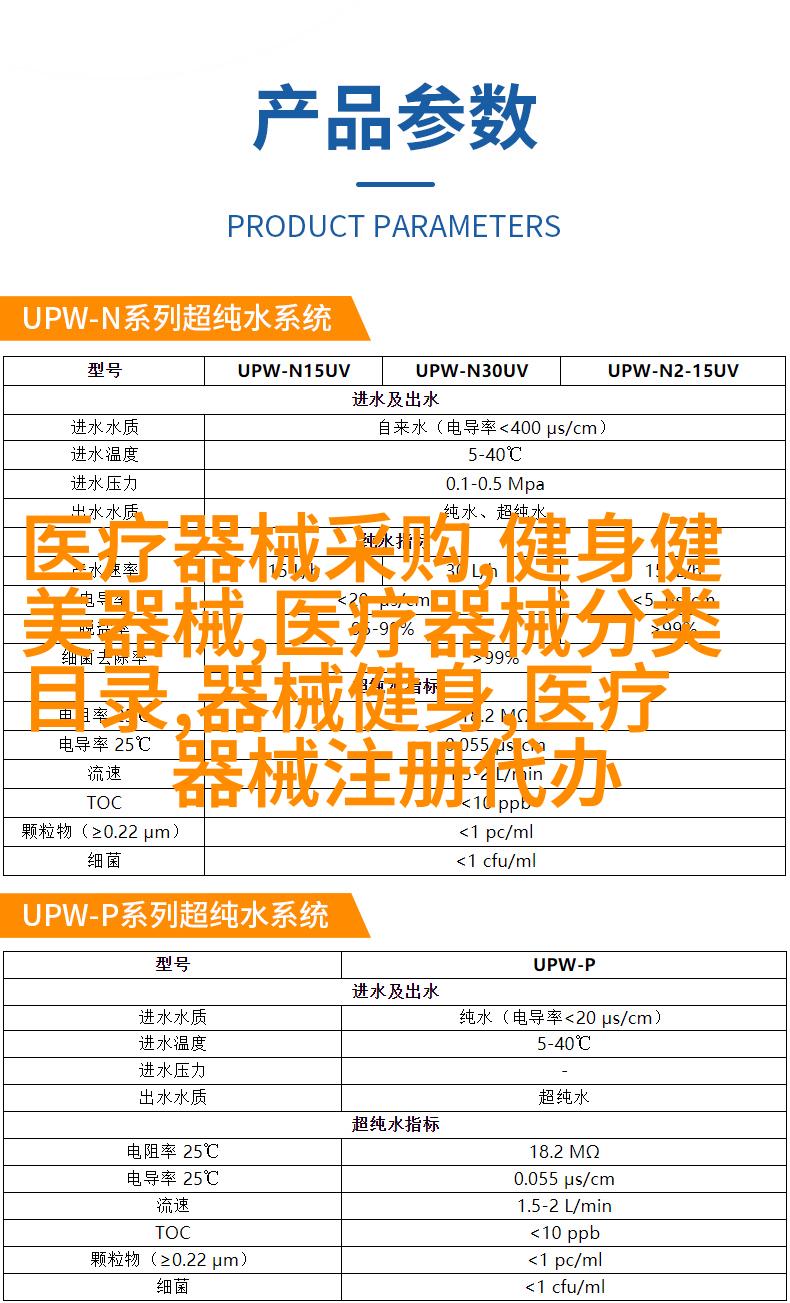 产品参数
PRODUCT PARAMETERS
UPW-N系列超纯水系统
型号 UPW-N15UV UPW-N30UV UPW-N2-15UV
进水及出水
进水水质 自来水（电导率<400 μs/cm）
进水温度 5-40℃
进水压力 0.1-0.5 Mpa
出水水质 纯水、超纯水
医疗器械采购,健身健
美器械,医疗器械分类
目录,器械健身,医疗
器械注册代办
纯水指标
产水速率 15 L/h 30 L/h 15 L/h
电导率 <20 μs/cm <5 μs/cm
脱盐率 >99%
细菌去除率 >99%
超纯水指标
电阻率 25℃ 18.2 MΩ
电导率 25℃ 0.055 μs/cm
流速 1.5-2 L/min
TOC <10 ppb
颗粒物（≥0.22 μm） <1 pc/ml
细菌 <1 cfu/ml
UPW-P系列超纯水系统
型号 UPW-P
进水及出水
进水水质 纯水（电导率<20 μs/cm）
进水温度 5-40℃
进水压力 -
出水水质 超纯水
超纯水指标
电阻率 25℃ 18.2 MΩ
电导率 25℃ 0.055 μs/cm
流速 1.5-2 L/min
TOC <10 ppb
颗粒物（≥0.22 μm） <1 pc/ml
细菌 <1 cfu/ml